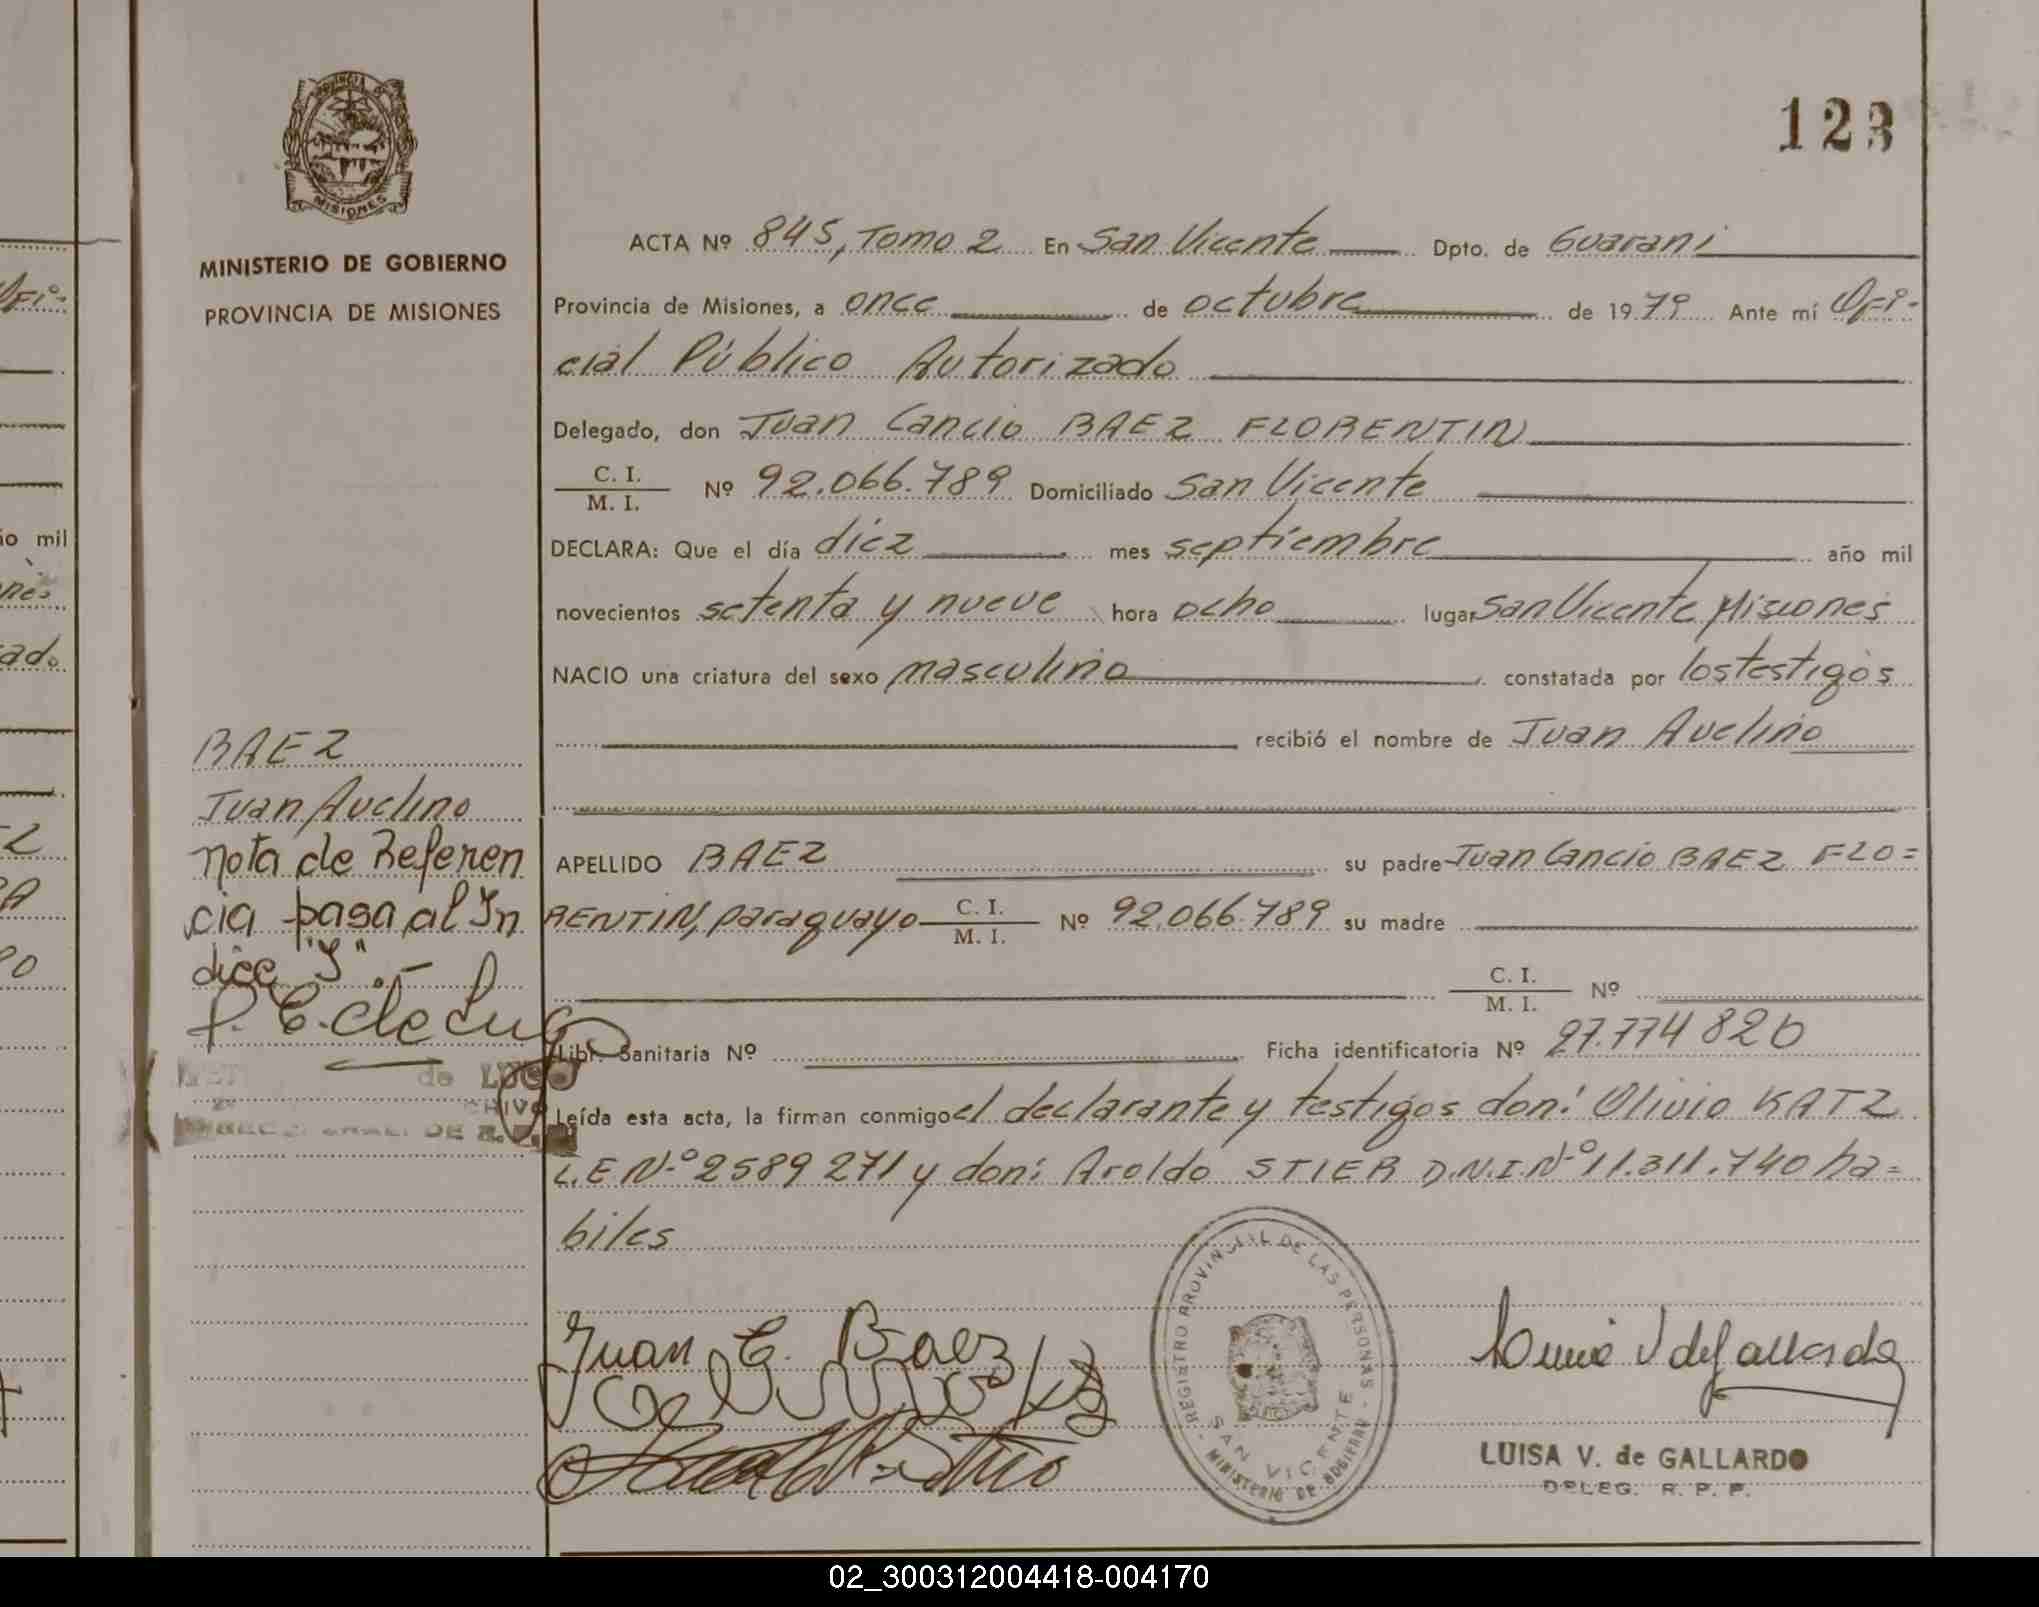 123
MINISTERIO DE GOBIERNO
PROVINCIA DE MISIONES
ACTA Nº 845, Tomo 2 En San Vicente Dpto. de Guarani
Provincia de Misiones, a once de octubre de 1979 Ante mí Ofi-
cial Público Autorizado
Delegado, don Juan Cancio BAEZ FLORENTIN
C. I.
M. I. Nº 92.066.789 Domiciliado San Vicente
DECLARA: Que el día diez mes septiembre año mil
novecientos setenta y nueve hora ocho lugar San Vicente Misiones
NACIO una criatura del sexo masculino constatada por los testigos
recibió el nombre de Juan Avelino
APELLIDO BAEZ su padre Juan Cancio BAEZ FLO=
RENTIN, paraguayo C. I.
M. I. Nº 92.066.789 su madre
C. I.
M. I. Nº
Libr. Sanitaria Nº Ficha identificatoria Nº 27.774 826
Leída esta acta, la firman conmigo el declarante y testigos don: Olivio KATZ
L.E Nº 2589271 y don: Aroldo STIER D.N.I. Nº 11.311.740 ha=
biles
BAEZ
Juan Avelino
Nota de Referen
cia pasa al In
dice "S".-
de LUGO
Juan C. Baez
REGISTRO PROVINCIAL DE LAS PERSONAS
SAN VICENTE
MINISTERIO DE GOBIERNO
LUISA V. de GALLARDO
DELEG. R. P. P.
02_300312004418-004170